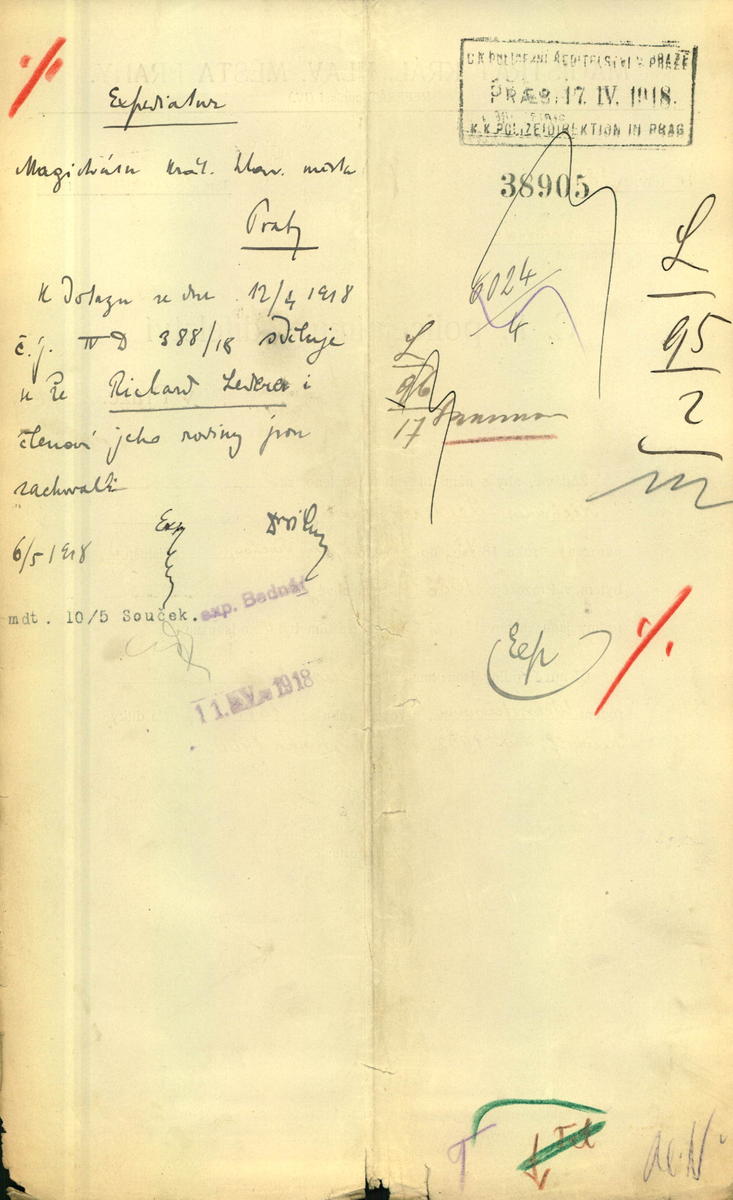 Expediatur
Magistrátu král. hlav. města
Prahy
K dotazu ze dne 12/4 1918
č.j. IV D 388/18 sděluje
se že Richard Lederer i
členové jeho rodiny jsou
zachovalí
6/5 1918
Exp
mdt. 10/5 Souček.
exp. Bednář
11. V. 1918
C.K. POLICEJNÍ ŘEDITELSTVÍ V PRAZE
PRÆS. 17. IV. 1918.
K.K. POLIZEIDIREKTION IN PRAG
38905
6024
4
L
95
2
L
96
17
Exp